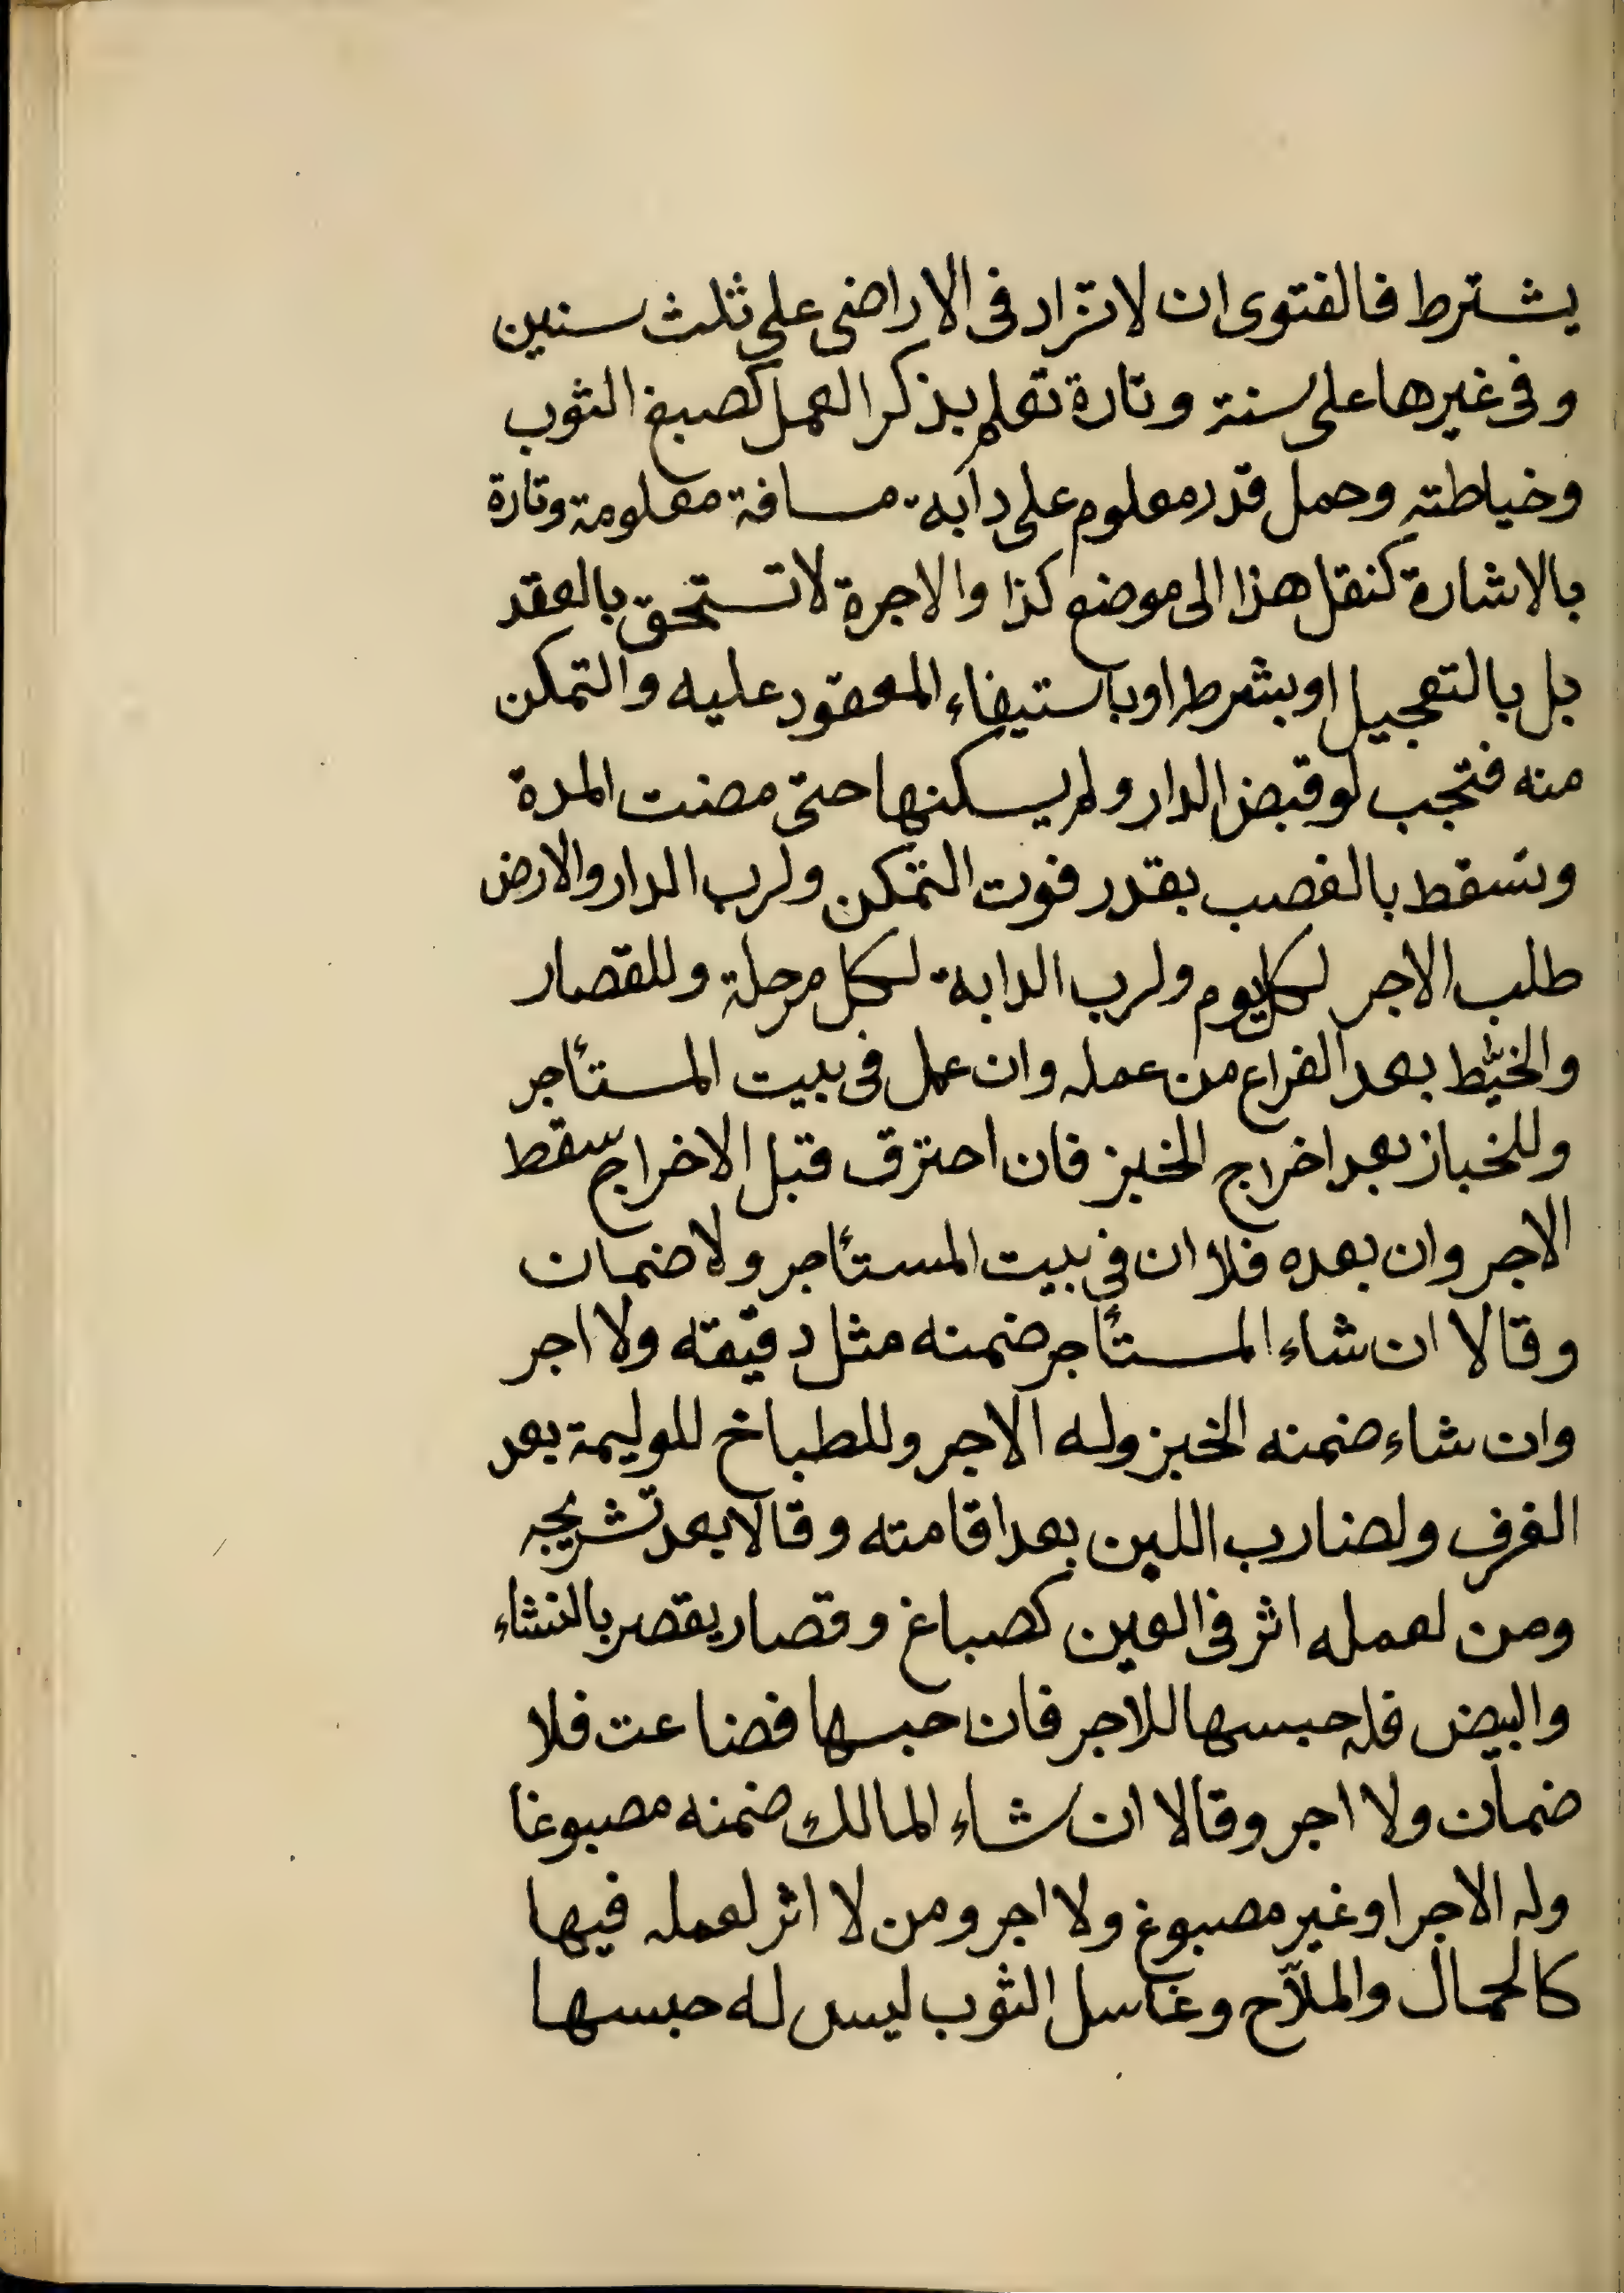 يشترط فالفتوى ان لا تزاد فى الاراضى على ثلث سنين
و فى غيرها على سنة و تارة تعلم بذكر العمل كصبغ الثوب
وخياطته وحمل قدر معلوم على دابة مسافة معلومة وتارة
بالاشارة كنقل هذا الى موضع كذا والاجرة لا تستحق بالعقد
بل بالتعجيل او بشرط او باستيفاء المعقود عليه والتمكن
منه فتجب لو قبض الدار ولم يسكنها حتى مضت المدة
وتسقط بالغصب بقدر فوت التمكن ولرب الدار والارض
طلب الاجر لكل يوم ولرب الدابة لكل مرحلة وللقصار
والخيّط بعد الفراغ من عمله وان عمل فى بيت المستأجر
وللخباز بعد اخراج الخبز فان احترق قبل الاخراج سقط
الاجر وان بعده فلا ان فى بيت المستأجر ولا ضمان
وقالا ان شاء المستأجر ضمنه مثل دقيقه ولا اجر
وان شاء ضمنه الخبز وله الاجر وللطباخ للوليمة بعد
الغرف ولضارب اللبن بعد اقامته وقالا بعد تشريجه
ومن لعمله اثر فى العين كصباغ وقصار يقصر بالنشاء
والبيض فله حبسها للاجر فان حبسها فضاعت فلا
ضمان ولا اجر وقالا ان شاء المالك ضمنه مصبوغا
وله الاجر او غير مصبوغ ولا اجر ومن لا اثر لعمله فيها
كالحمال والملّاح وغاسل الثوب ليس له حبسها